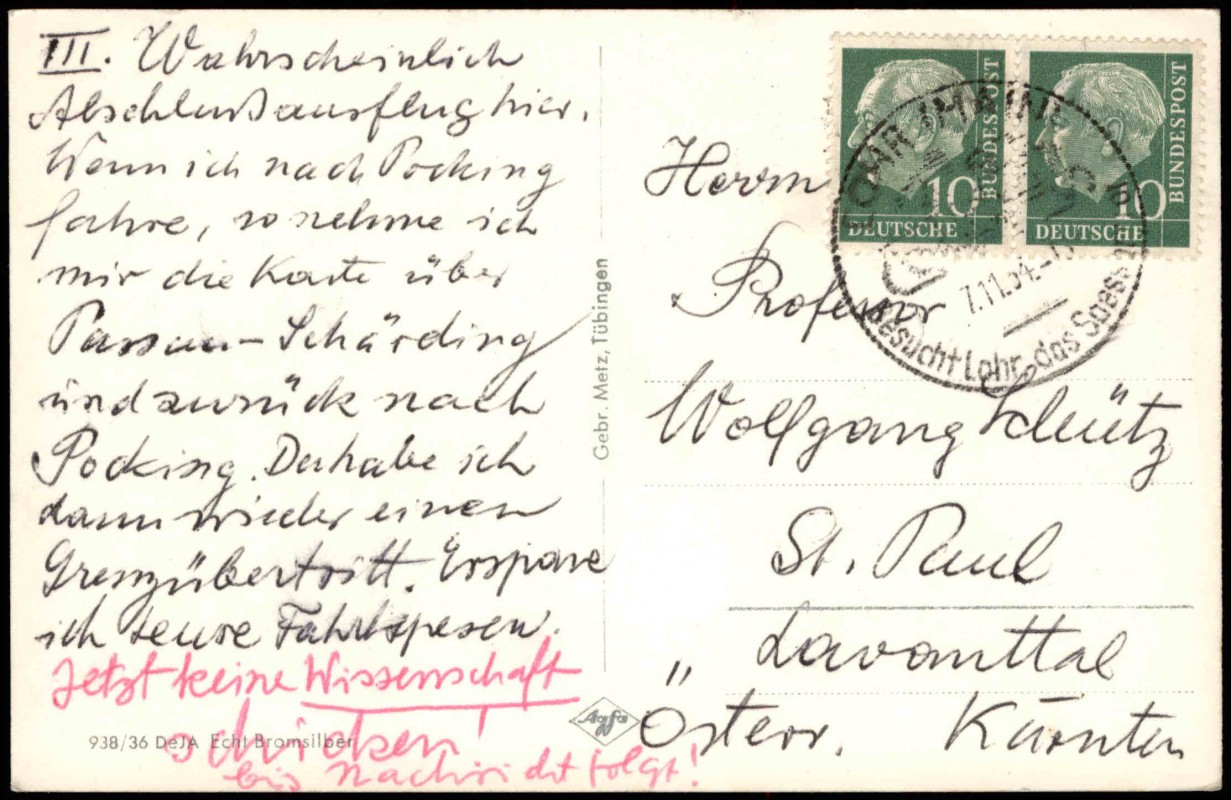 III. Wahrscheinlich
Abschlußausflug hier.
Wenn ich nach Pocking
fahre, so nehme ich
mir die Karte über
Passau-Schärding
und zurück nach
Pocking. Da habe ich
dann wieder einen
Grenzübertritt. Erspare
ich teure Fahrtspesen.
Jetzt keine Wissenschaft
schicken!
bis Nachricht folgt!
938/36 DeJA Echt Bromsilber
Gebr. Metz, Tübingen
Agfa
10 BUNDESPOST
DEUTSCHE
10 BUNDESPOST
DEUTSCHE
LOHR (MAIN)
7.11.54.
Besucht Lohr, das Spess
Herrn
Professor
Wolfgang Schütz
St. Paul
" Lavanttal
Österr. Kärnten